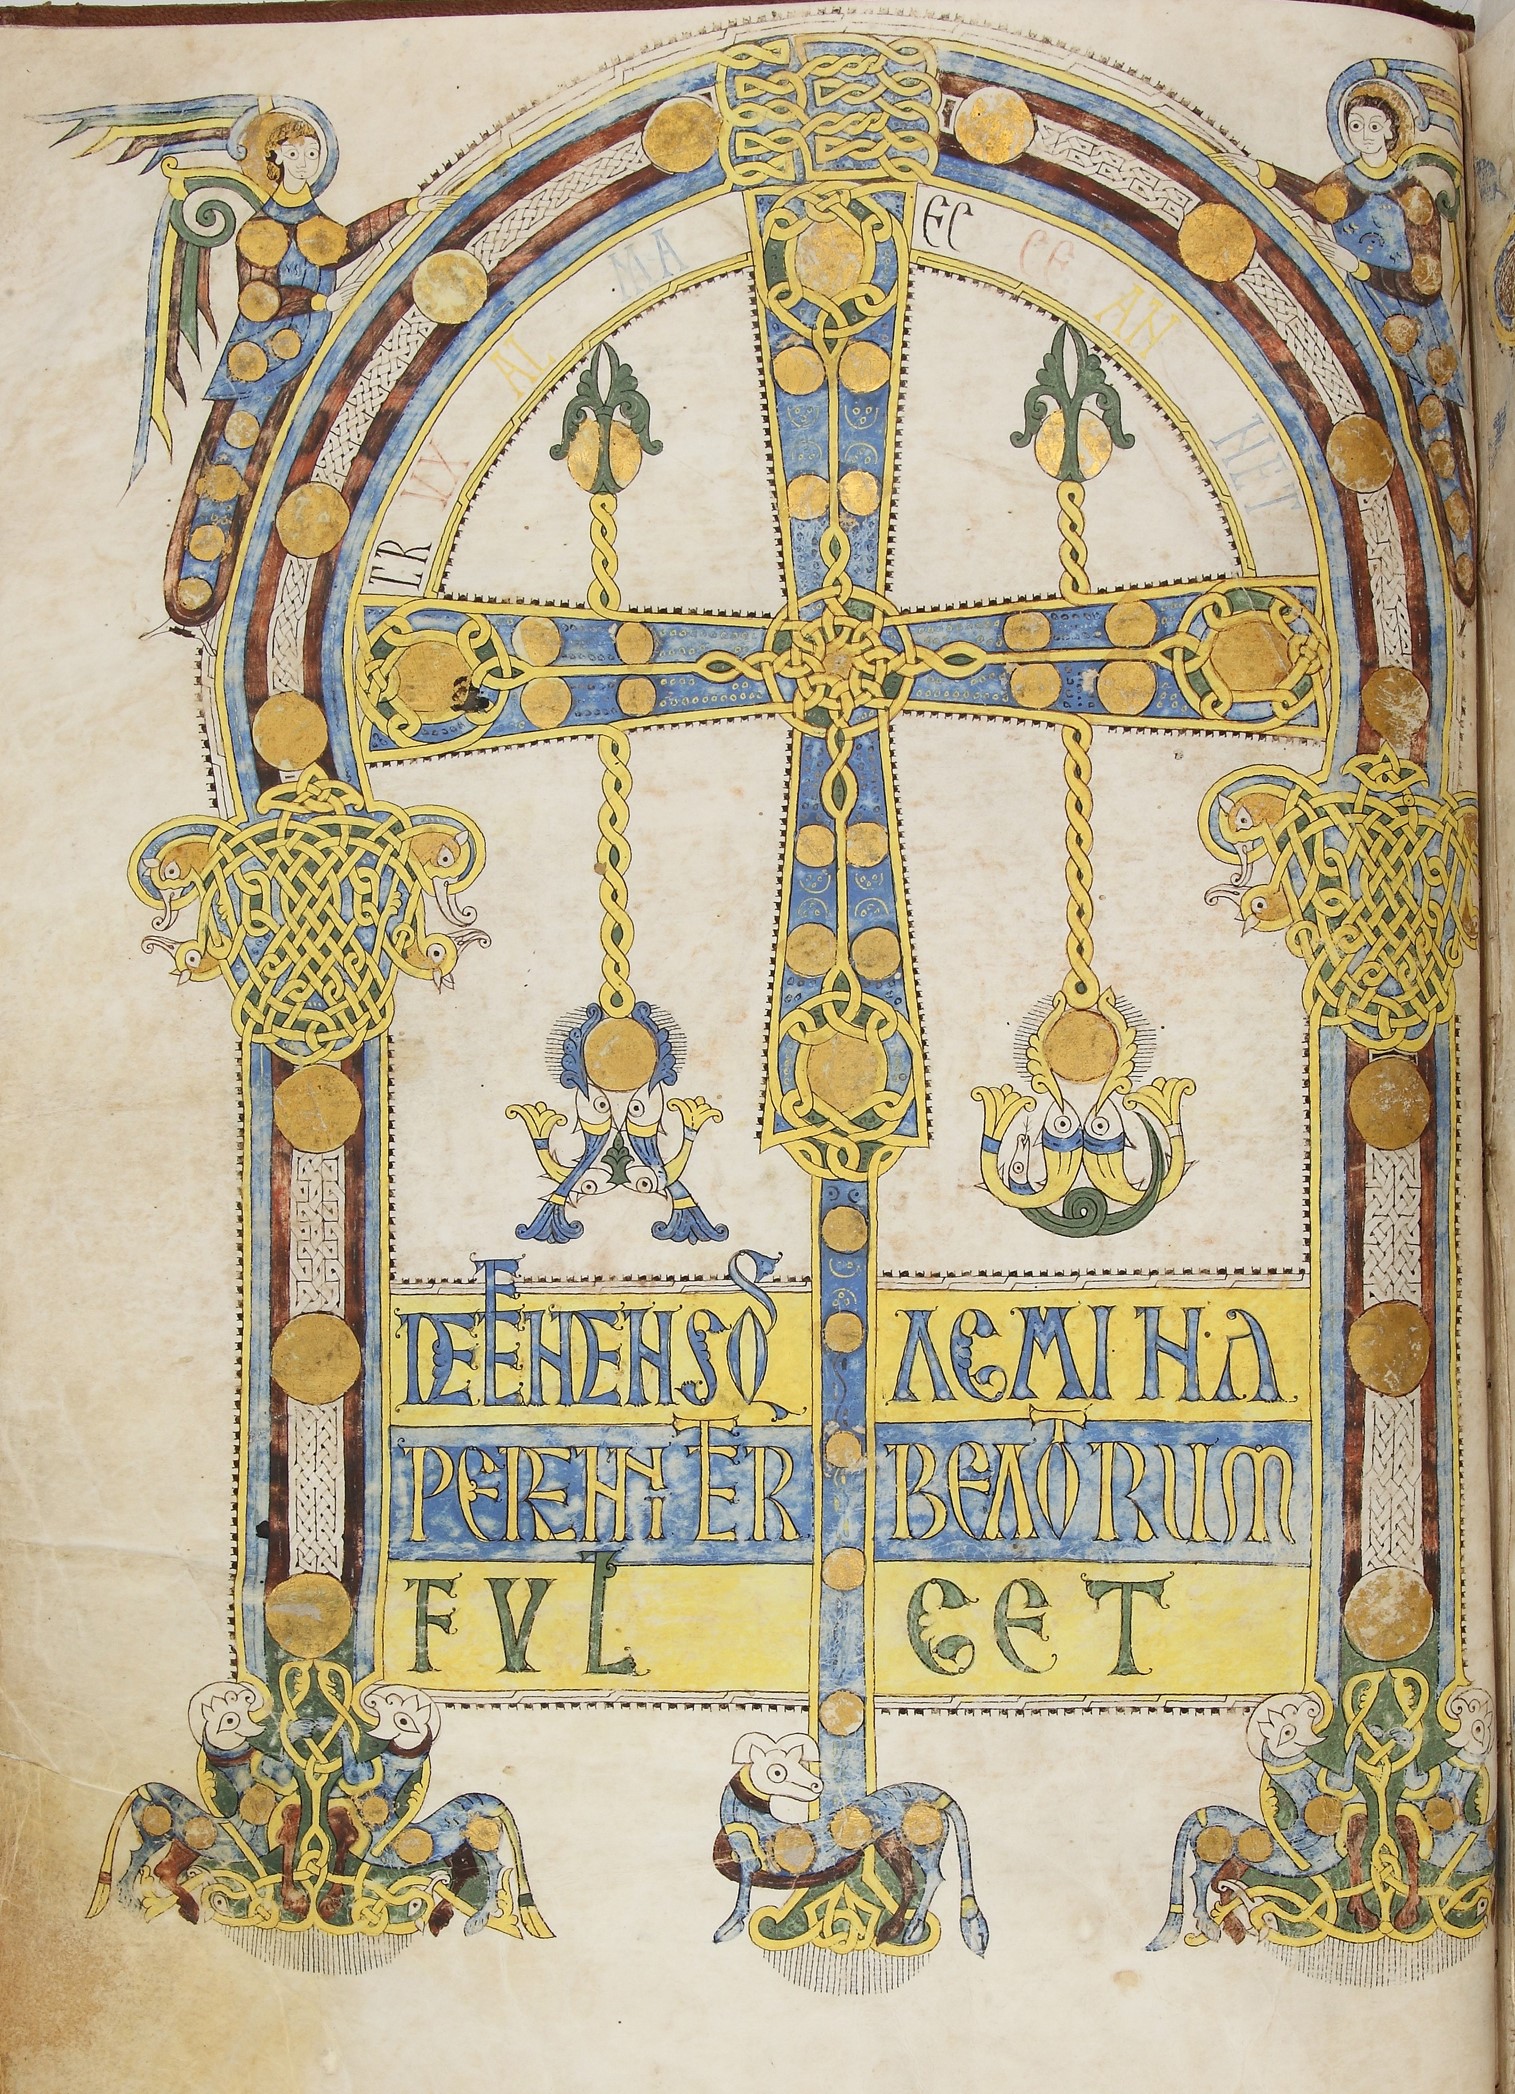 CR UX AL MA EC CE AN NET
DEFENDENSQ AGMINA
PERENNITER BEATORUM
FULGET